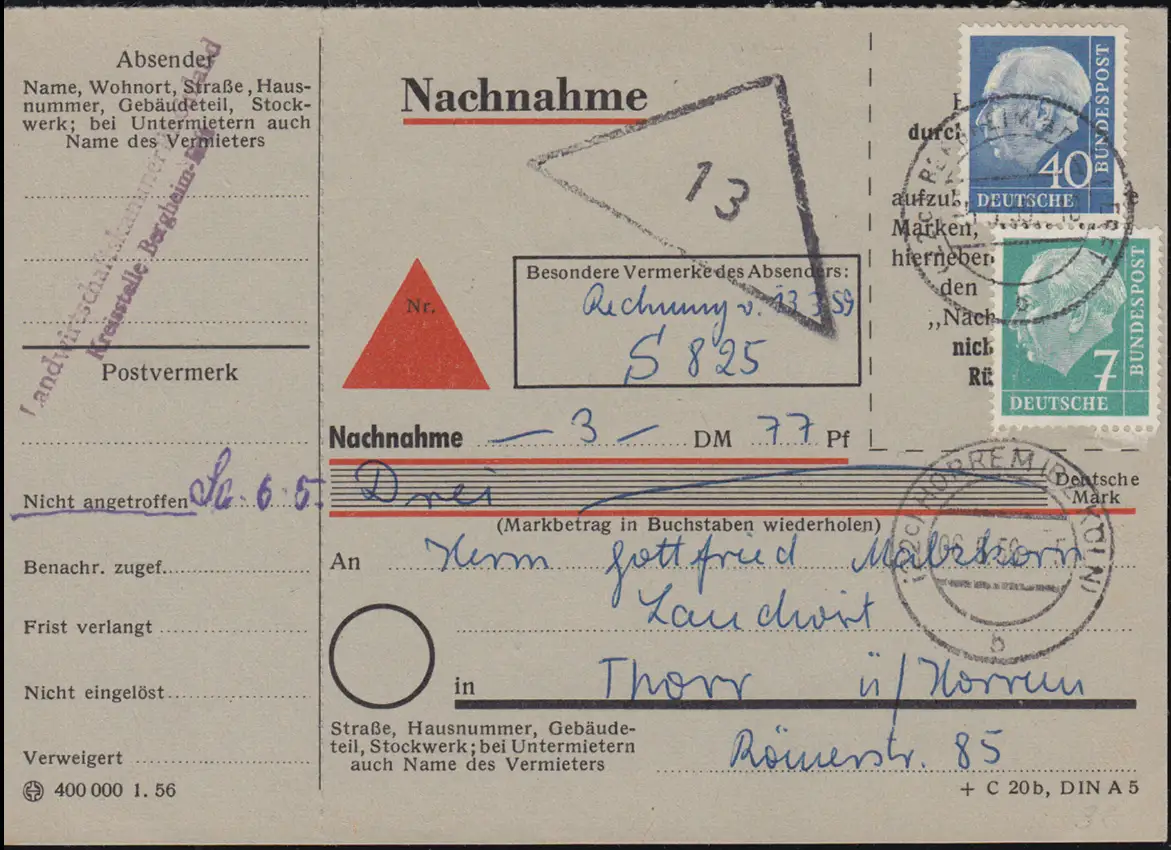 Absender
Name, Wohnort, Straße, Haus-
nummer, Gebäudeteil, Stock-
werk; bei Untermietern auch
Name des Vermieters
Landwirtschaftskammer Rheinland
Kreisstelle Bergheim-Erft
Postvermerk
Nicht angetroffen Sa. 6. 5.
Benachr. zugef.
Frist verlangt
Nicht eingelöst
Verweigert
400 000 1. 56
Nachnahme
13
Nr.
Besondere Vermerke des Absenders:
Rechnung v. 13.3.59
S 825
durch
aufzub
Marken,
hierneben
den
„Nach
nich
Rü
40
DEUTSCHE
BUNDESPOST
7
DEUTSCHE
BUNDESPOST
b
Nachnahme — 3 — DM 77 Pf
Drei Deutsche
Mark
(Markbetrag in Buchstaben wiederholen)
(22c) HORREM (BZ KÖLN)
b
An Herrn Gottfried
Landwirt
in Thorr ü/Horrem
Straße, Hausnummer, Gebäude-
teil, Stockwerk; bei Untermietern
auch Name des Vermieters
Römerstr. 85
+ C 20b, DIN A 5